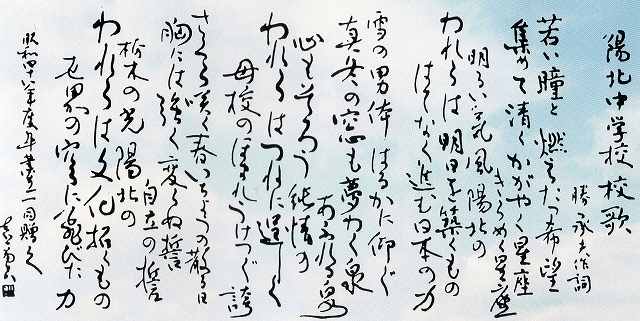 陽北中学校 校歌
勝承夫作詞
若い瞳と燃えたつ希望
集めて清くかがやく星座
きらめく星座
明るい気風陽北の
われらは明日を築くもの
はてなく進む日本の力
雪の男体はるかに仰ぐ
真冬の窓も夢わく泉
あふれる泉
心もそろう純情の
われらはつねに正しく
母校のほまれうけつぐ誇
さくら咲く春いちょうの散る日
胸には強く変らぬ誓
自立の誓
栃木の光陽北の
われらは文化拓くもの
世界の空に飛びたつ力
昭和四十八年度卒業生一同贈る